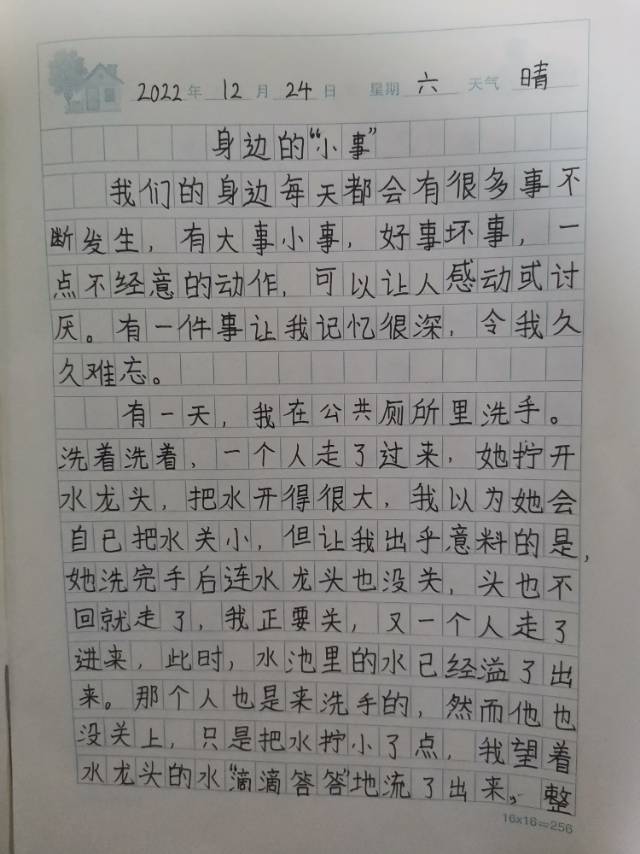 2022年 12月 24日 星期 六 天气 晴
身边的“小事”
我们的身边每天都会有很多事不
断发生，有大事小事，好事坏事，一
点不经意的动作，可以让人感动或讨
厌。有一件事让我记忆很深，令我久
久难忘。
有一天，我在公共厕所里洗手。
洗着洗着，一个人走了过来，她拧开
水龙头，把水开得很大，我以为她会
自已把水关小，但让我出乎意料的是，
她洗完手后连水龙头也没关，头也不
回就走了，我正要关，又一个人走了
进来，此时，水池里的水已经溢了出
来。那个人也是来洗手的，然而他也
没关上，只是把水拧小了点，我望着
水龙头的水“滴滴答答”地流了出来。整
16×16=256